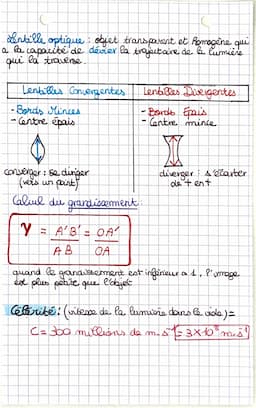 Lentille optique : objet transparent et homogène qui
a la capacité de dévier la trajectoire de la lumière
qui la traverse.
Lentilles Convergentes Lentilles Divergentes
- Bords Minces - Bords Épais
- Centre épais - Centre mince
converger : se diriger diverger : s'écarter
(vers un point) de + en +
Calcul du grandissement :
γ = A'B' / AB = OA' / OA
quand le grandissement est inférieur à 1, l'image
est plus petite que l'objet
Célérité : (vitesse de la lumière dans le vide) =
C = 300 millions de m.s⁻¹ = 3 × 10⁸ m.s⁻¹